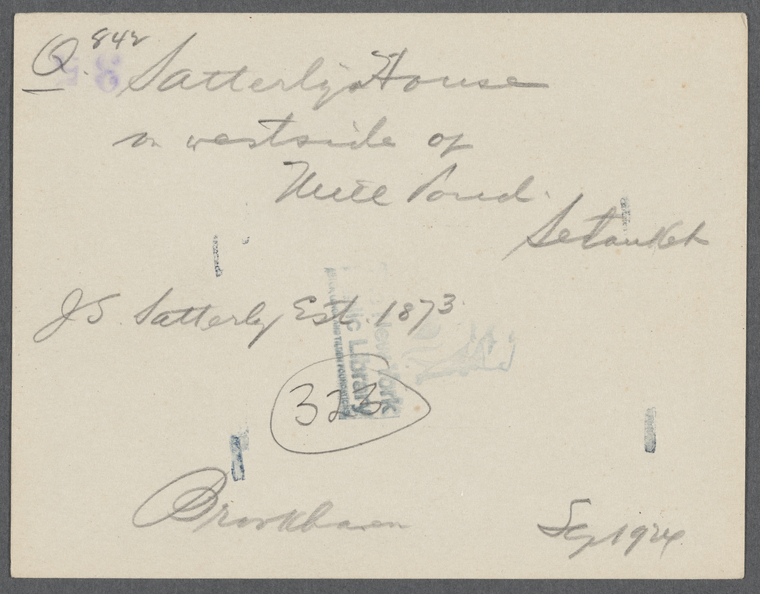 Q. 842
Satterly House
on westside of
Mill Pond.
Setauket
J S. Satterly Est. 1873
New York
Public Library
323
Brookhaven
Sep 1924